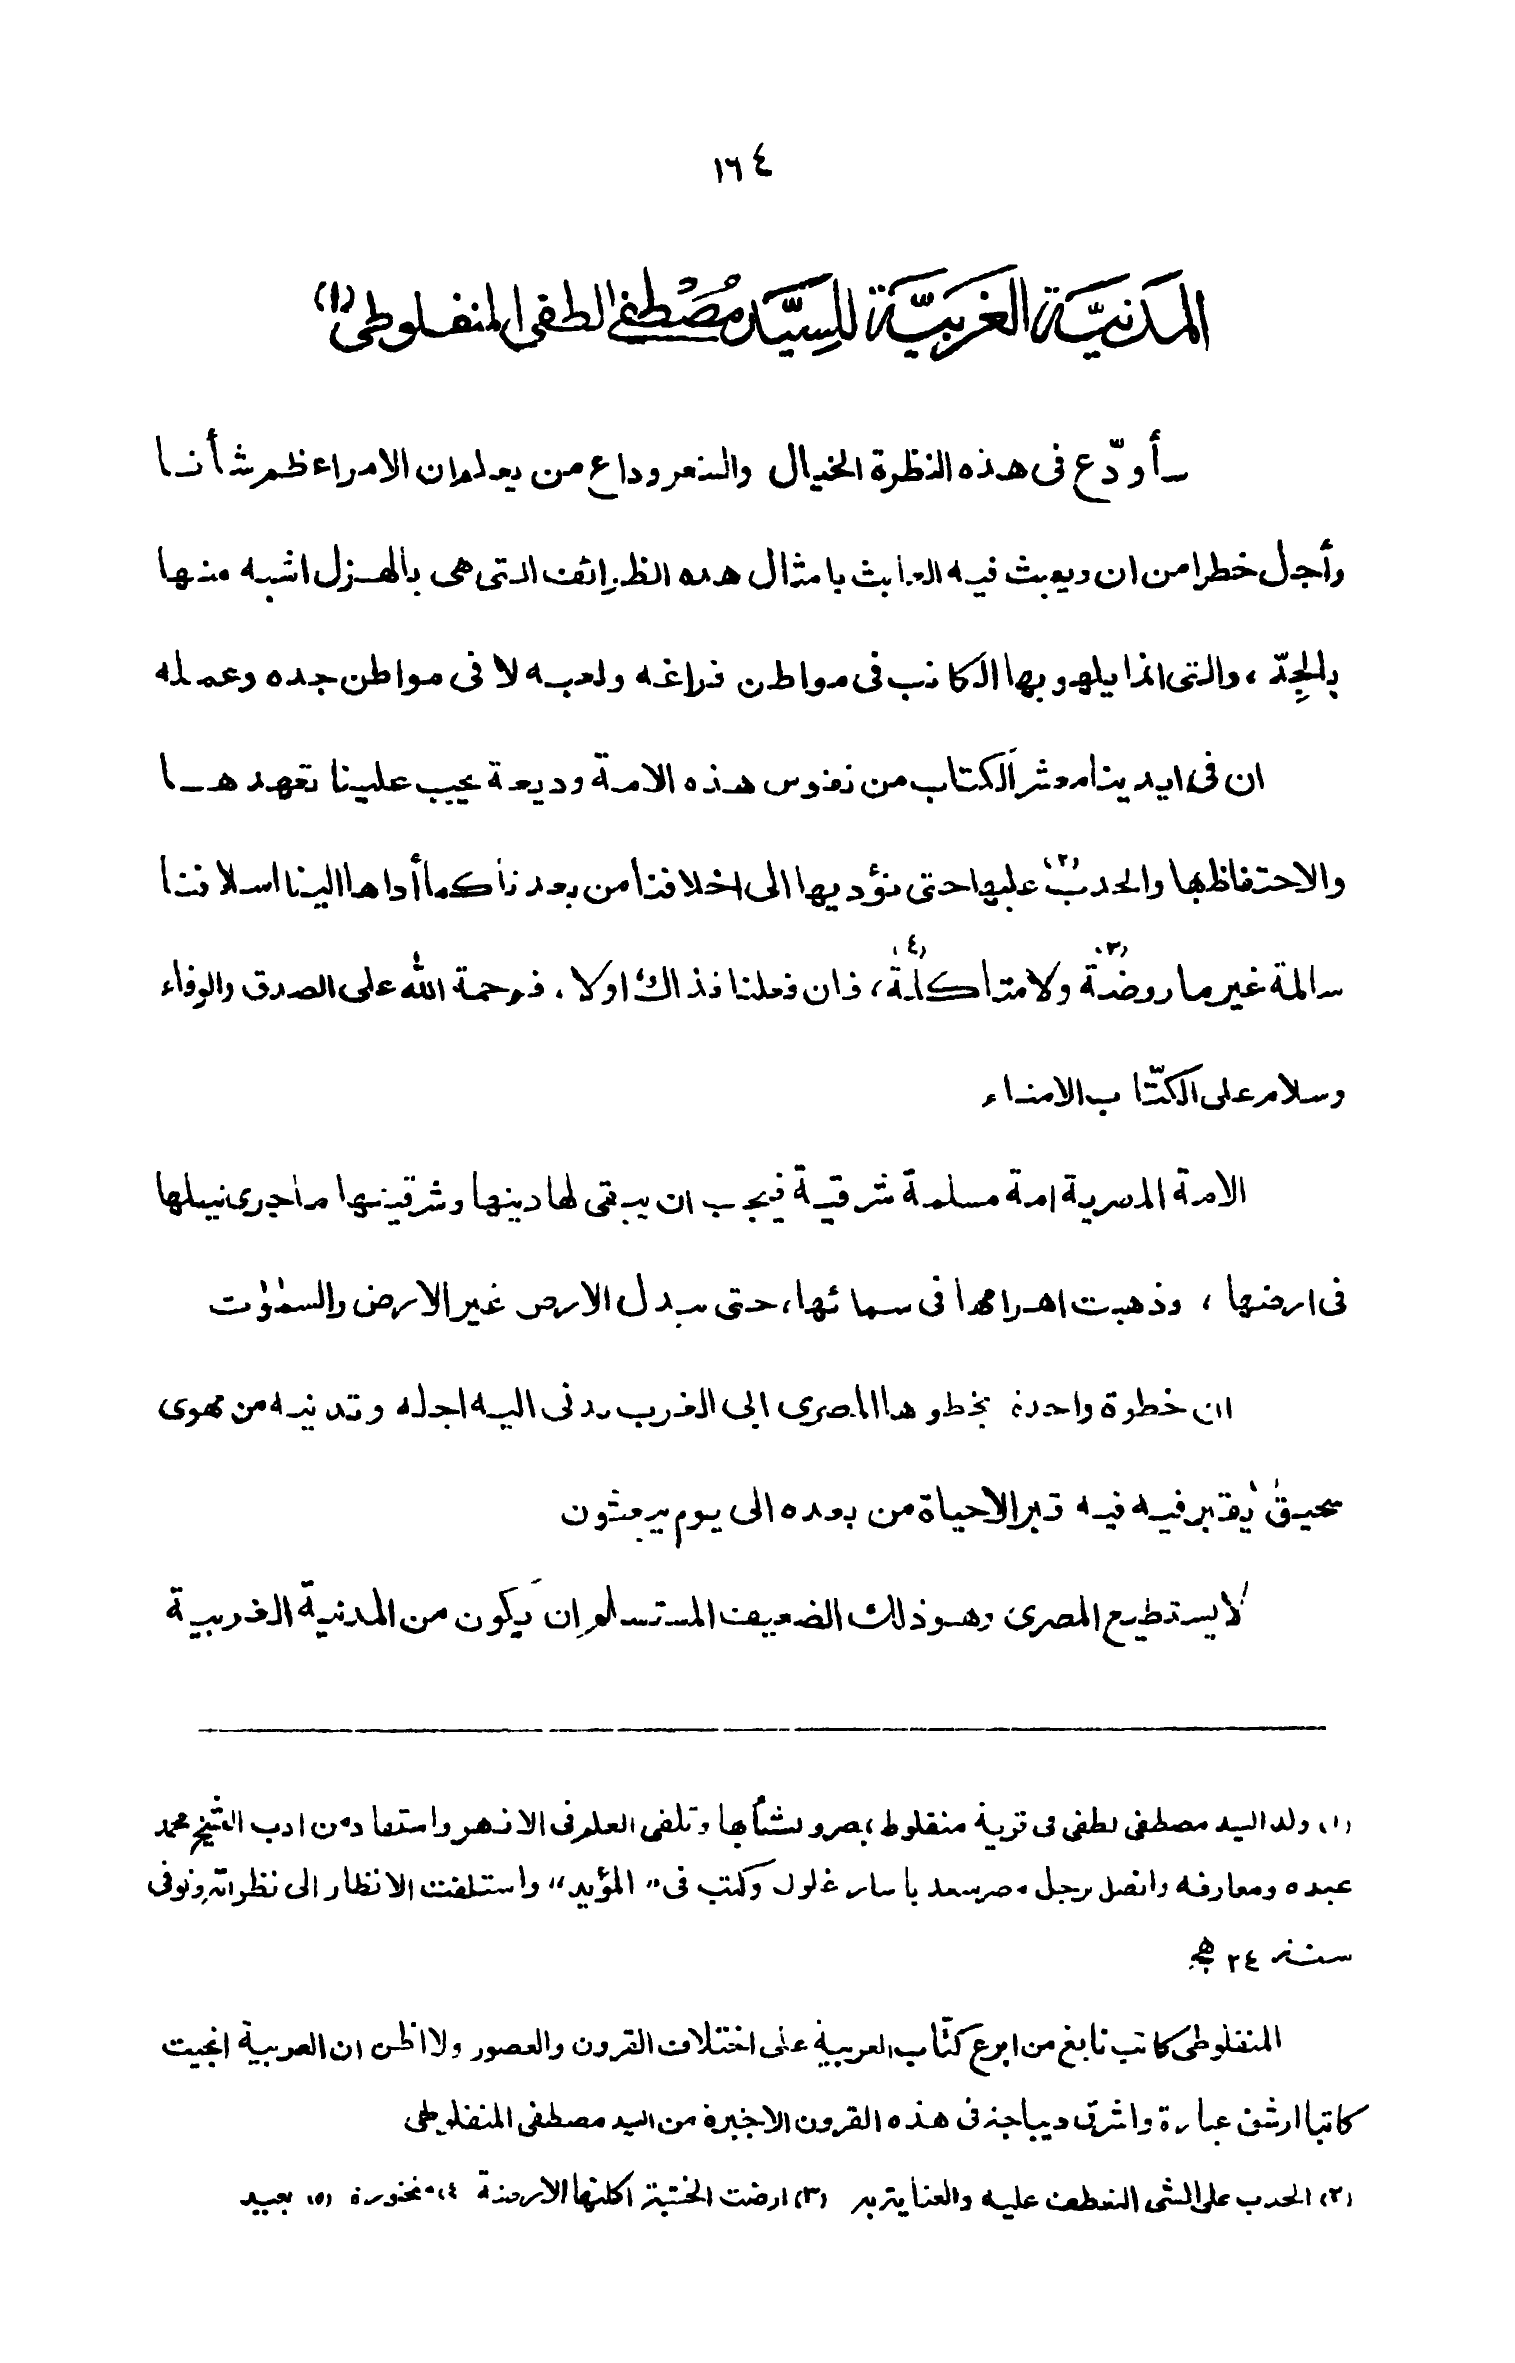 ١٦٤
المدنيَّة الغربيَّة للسيَّد مصْطفى لطفى المنفلوطى (١)
سأودّع فى هذه النظرة الخيال والشعر وداع من يعلم ان الامر اعظم شأنا
وأجل خطرا من ان يعبث فيه العابث بامثال هذه الظرائف التى هى بالهزل اشبه منها
بالجِدّ ، والتى انما يلهو بها الكاتب فى مواطن فراغه ولعبه لا فى مواطن جده وعمله
ان فى ايدينا معشر الكتاب من نفوس هذه الامة وديعة يجب علينا تعهدها
والاحتفاظ بها والحدب (٢) عليها حتى نؤديها الى اخلافنا من بعدنا كما أداها الينا اسلافنا
سالمة غير ماروضة (٣) ولا متاكلة (٤) ، فان فعلنا فذاك او لا ، فرحمة الله على الصدق والوفاء
وسلام على الكتّاب الامناء
الامة المصرية امة مسلمة شرقية فيجب ان يبقى لها دينها وشرقيتها ما جرى نيلها
فى ارضها ، وذهبت اهرامها فى سمائها ، حتى تبدل الارض غير الارض والسمٰوٰت
ان خطوة واحدة يخطوها المصرى الى الغرب تدنى اليه اجله وتدنيه من مهوى
سحيق يُقبر فيه فيه قبرا لا حياة من بعده الى يوم يبعثون
لا يستطيع المصرى وهو ذلك الضعيف المستسلم ان يكون من المدنية الغربية
(١) ولد السيد مصطفى لطفى فى قرية منفلوط بمصر ونشأ بها وتلقى العلم فى الازهر واستفاد من ادب الشيخ محمد
عبده ومعارفه واتصل برجل مصر سعد باسا زغلول وكتب فى "المؤيد" واستلفت الانظار الى نظراته وتوفى
سنة ٢٤ هـ
المنفلوطى كاتب نابغ من ابرع كتّاب العربية على اختلاف القرون والعصور ولا اظن ان العربية انجبت
كاتبا ارشق عبارة واشرق ديباجة فى هذه القرون الاخيرة من السيد مصطفى المنفلوطى
(٢) الحدب على الشى التعطف عليه والعناية به (٣) ارضت الخشبة اكلتها الارضة (٤) منخورة (٥) بعيد